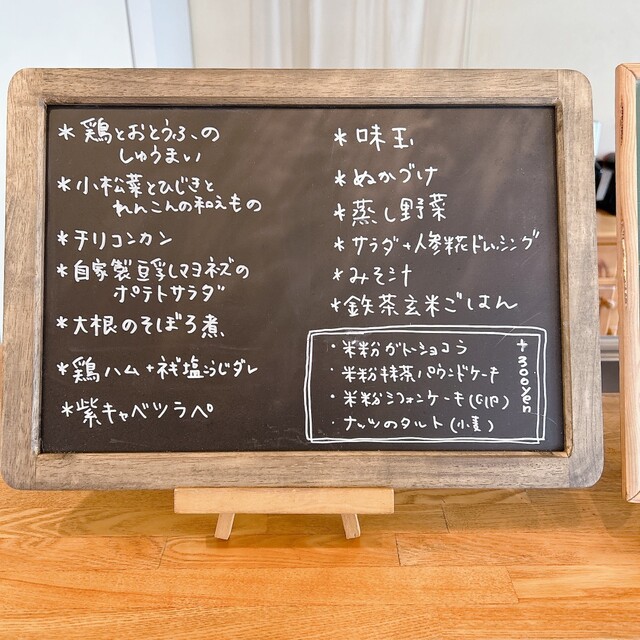 *鶏とおとうふの
しゅうまい
*小松菜とひじきと
れんこんの和えもの
*チリコンカン
*自家製豆乳マヨネーズの
ポテトサラダ
*大根のそぼろ煮
*鶏ハム+ねぎ塩こうじダレ
*紫キャベツラペ
*味玉
*ぬかづけ
*蒸し野菜
*サラダ+人参糀ドレッシング
*みそ汁
*鉄茶玄米ごはん
・米粉ガトーショコラ
・米粉抹茶パウンドケーキ
・米粉シフォンケーキ
・ナッツのタルト(小麦)
+300yen